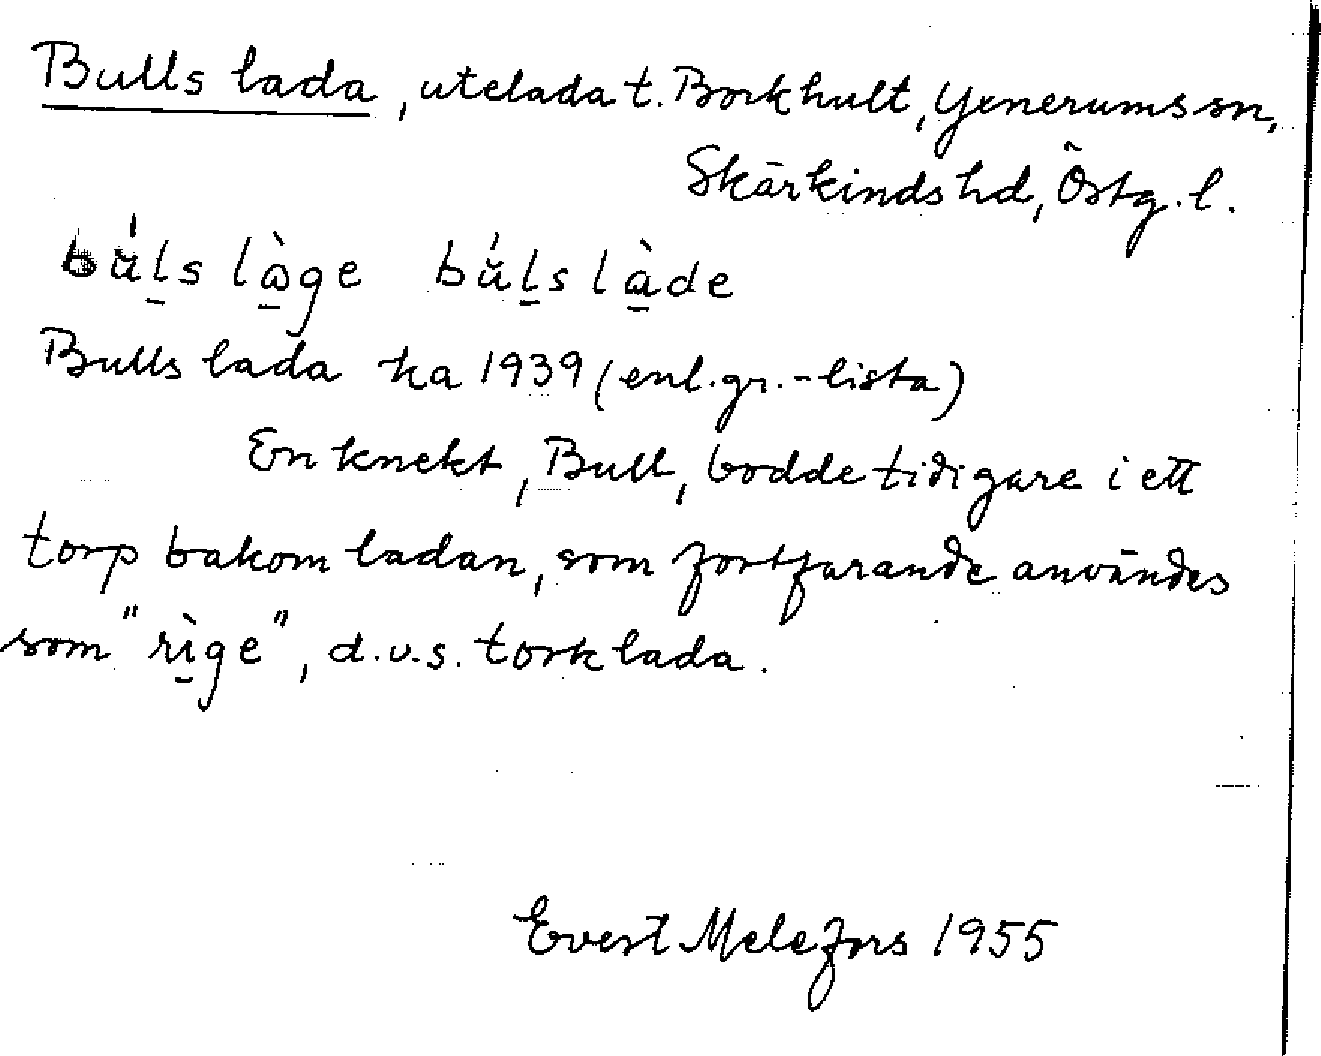 Bulls lada, utelada t. Borkhult, Yxnerums sn,
Skärkinds hd, Östg. l.
bu̍l̠s lòge bu̍l̠s là̠de
Bulls lada ka 1939 (enl. gr.-lista)
En knekt, Bull, bodde tidigare i ett
torp bakom ladan, som fortfarande användes
som "rì̠ge", d.v.s. torklada.
Evert Melefors 1955